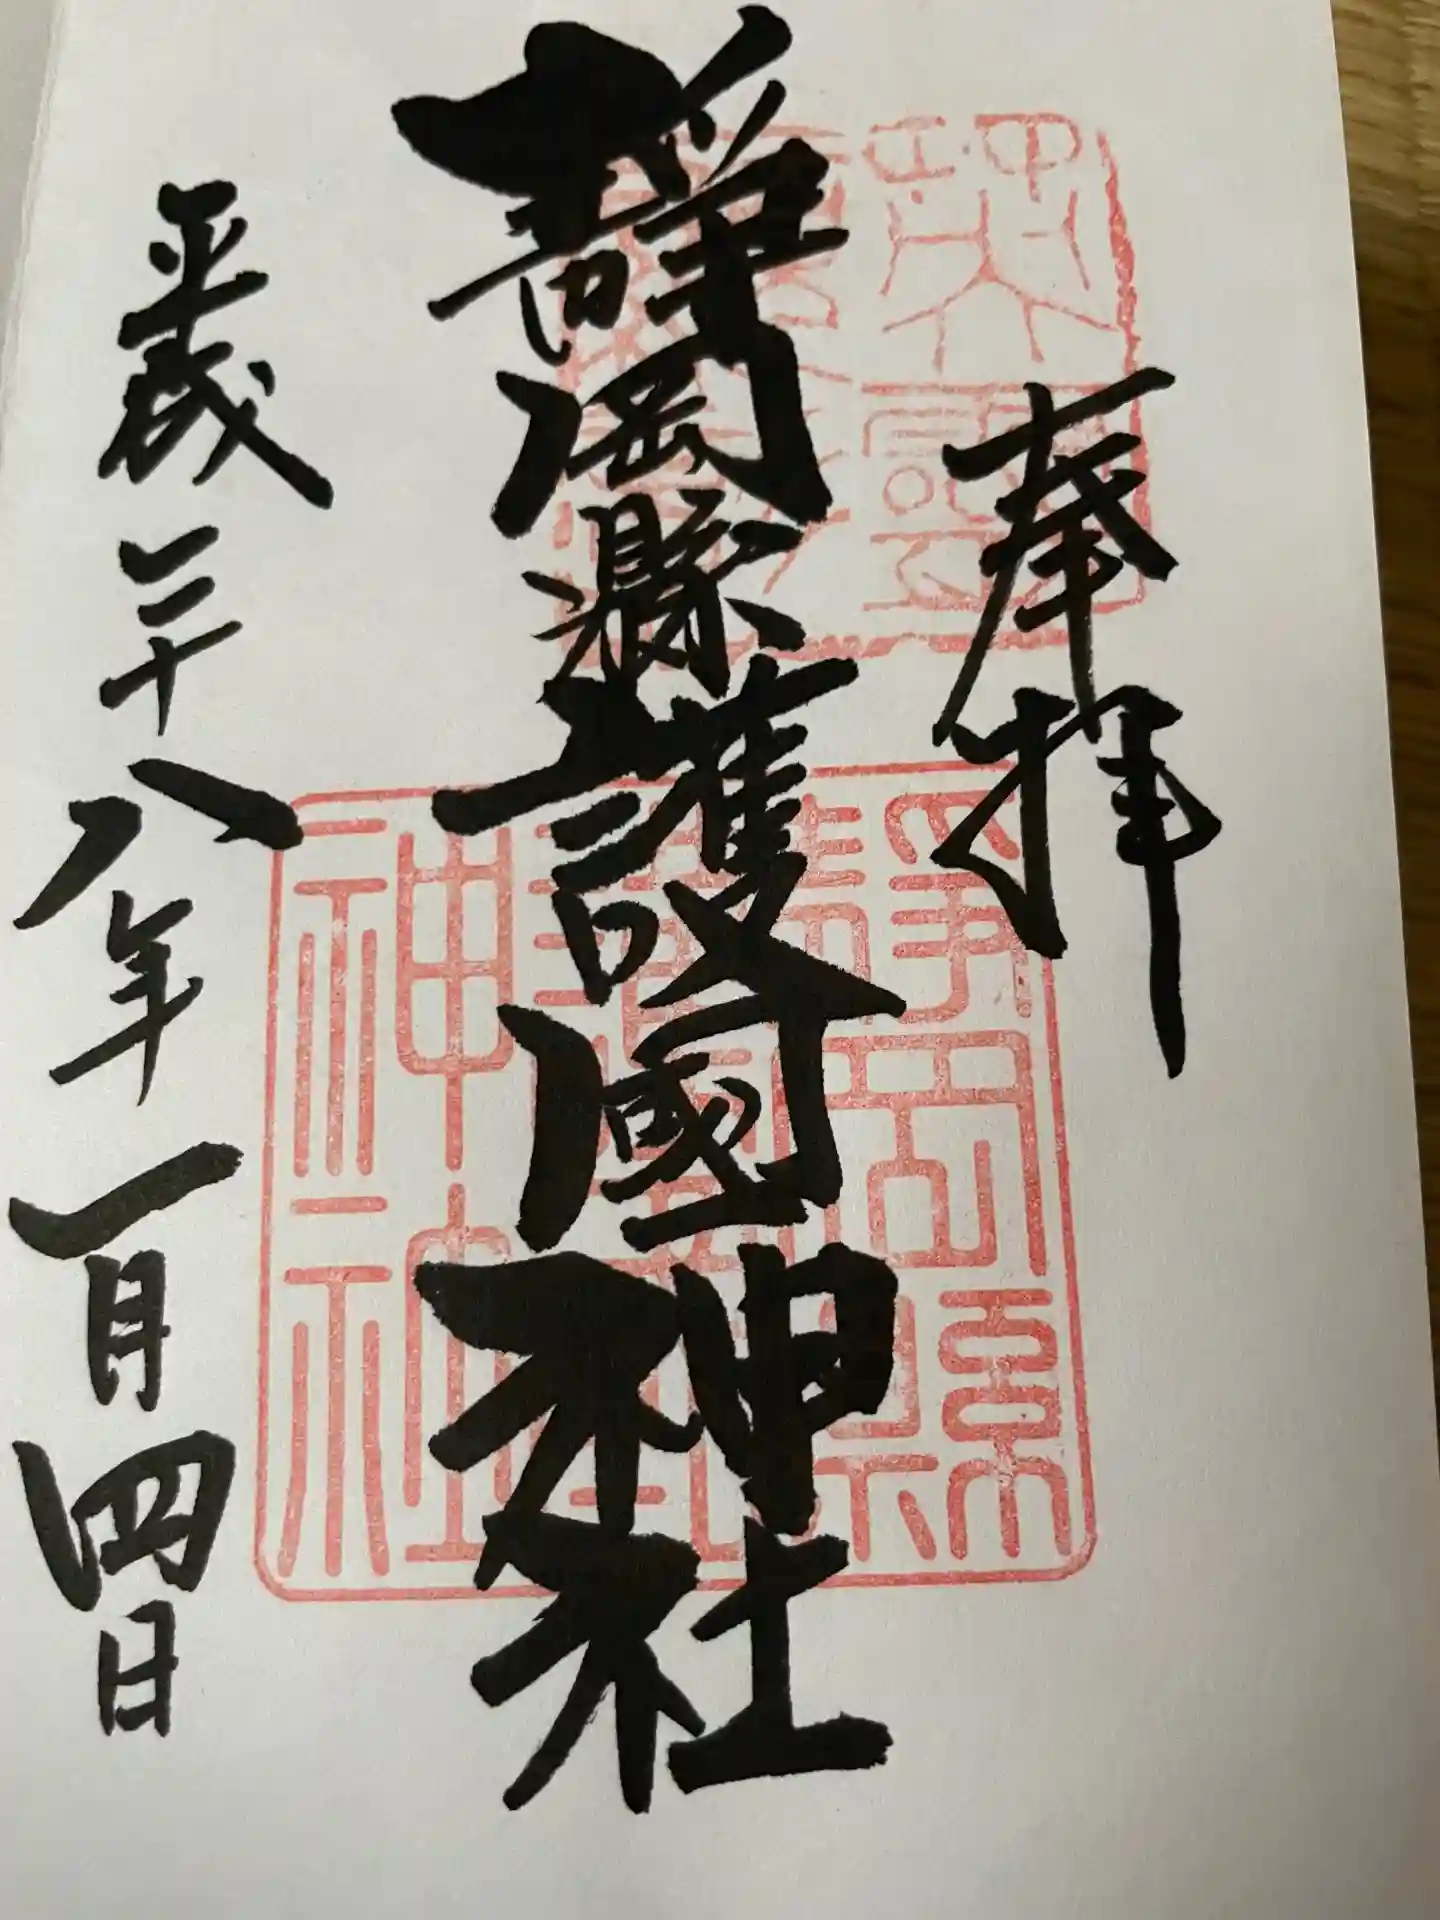 奉拝
靜岡縣護國神社
平成二十八年一月四日
靜岡縣
護國神社